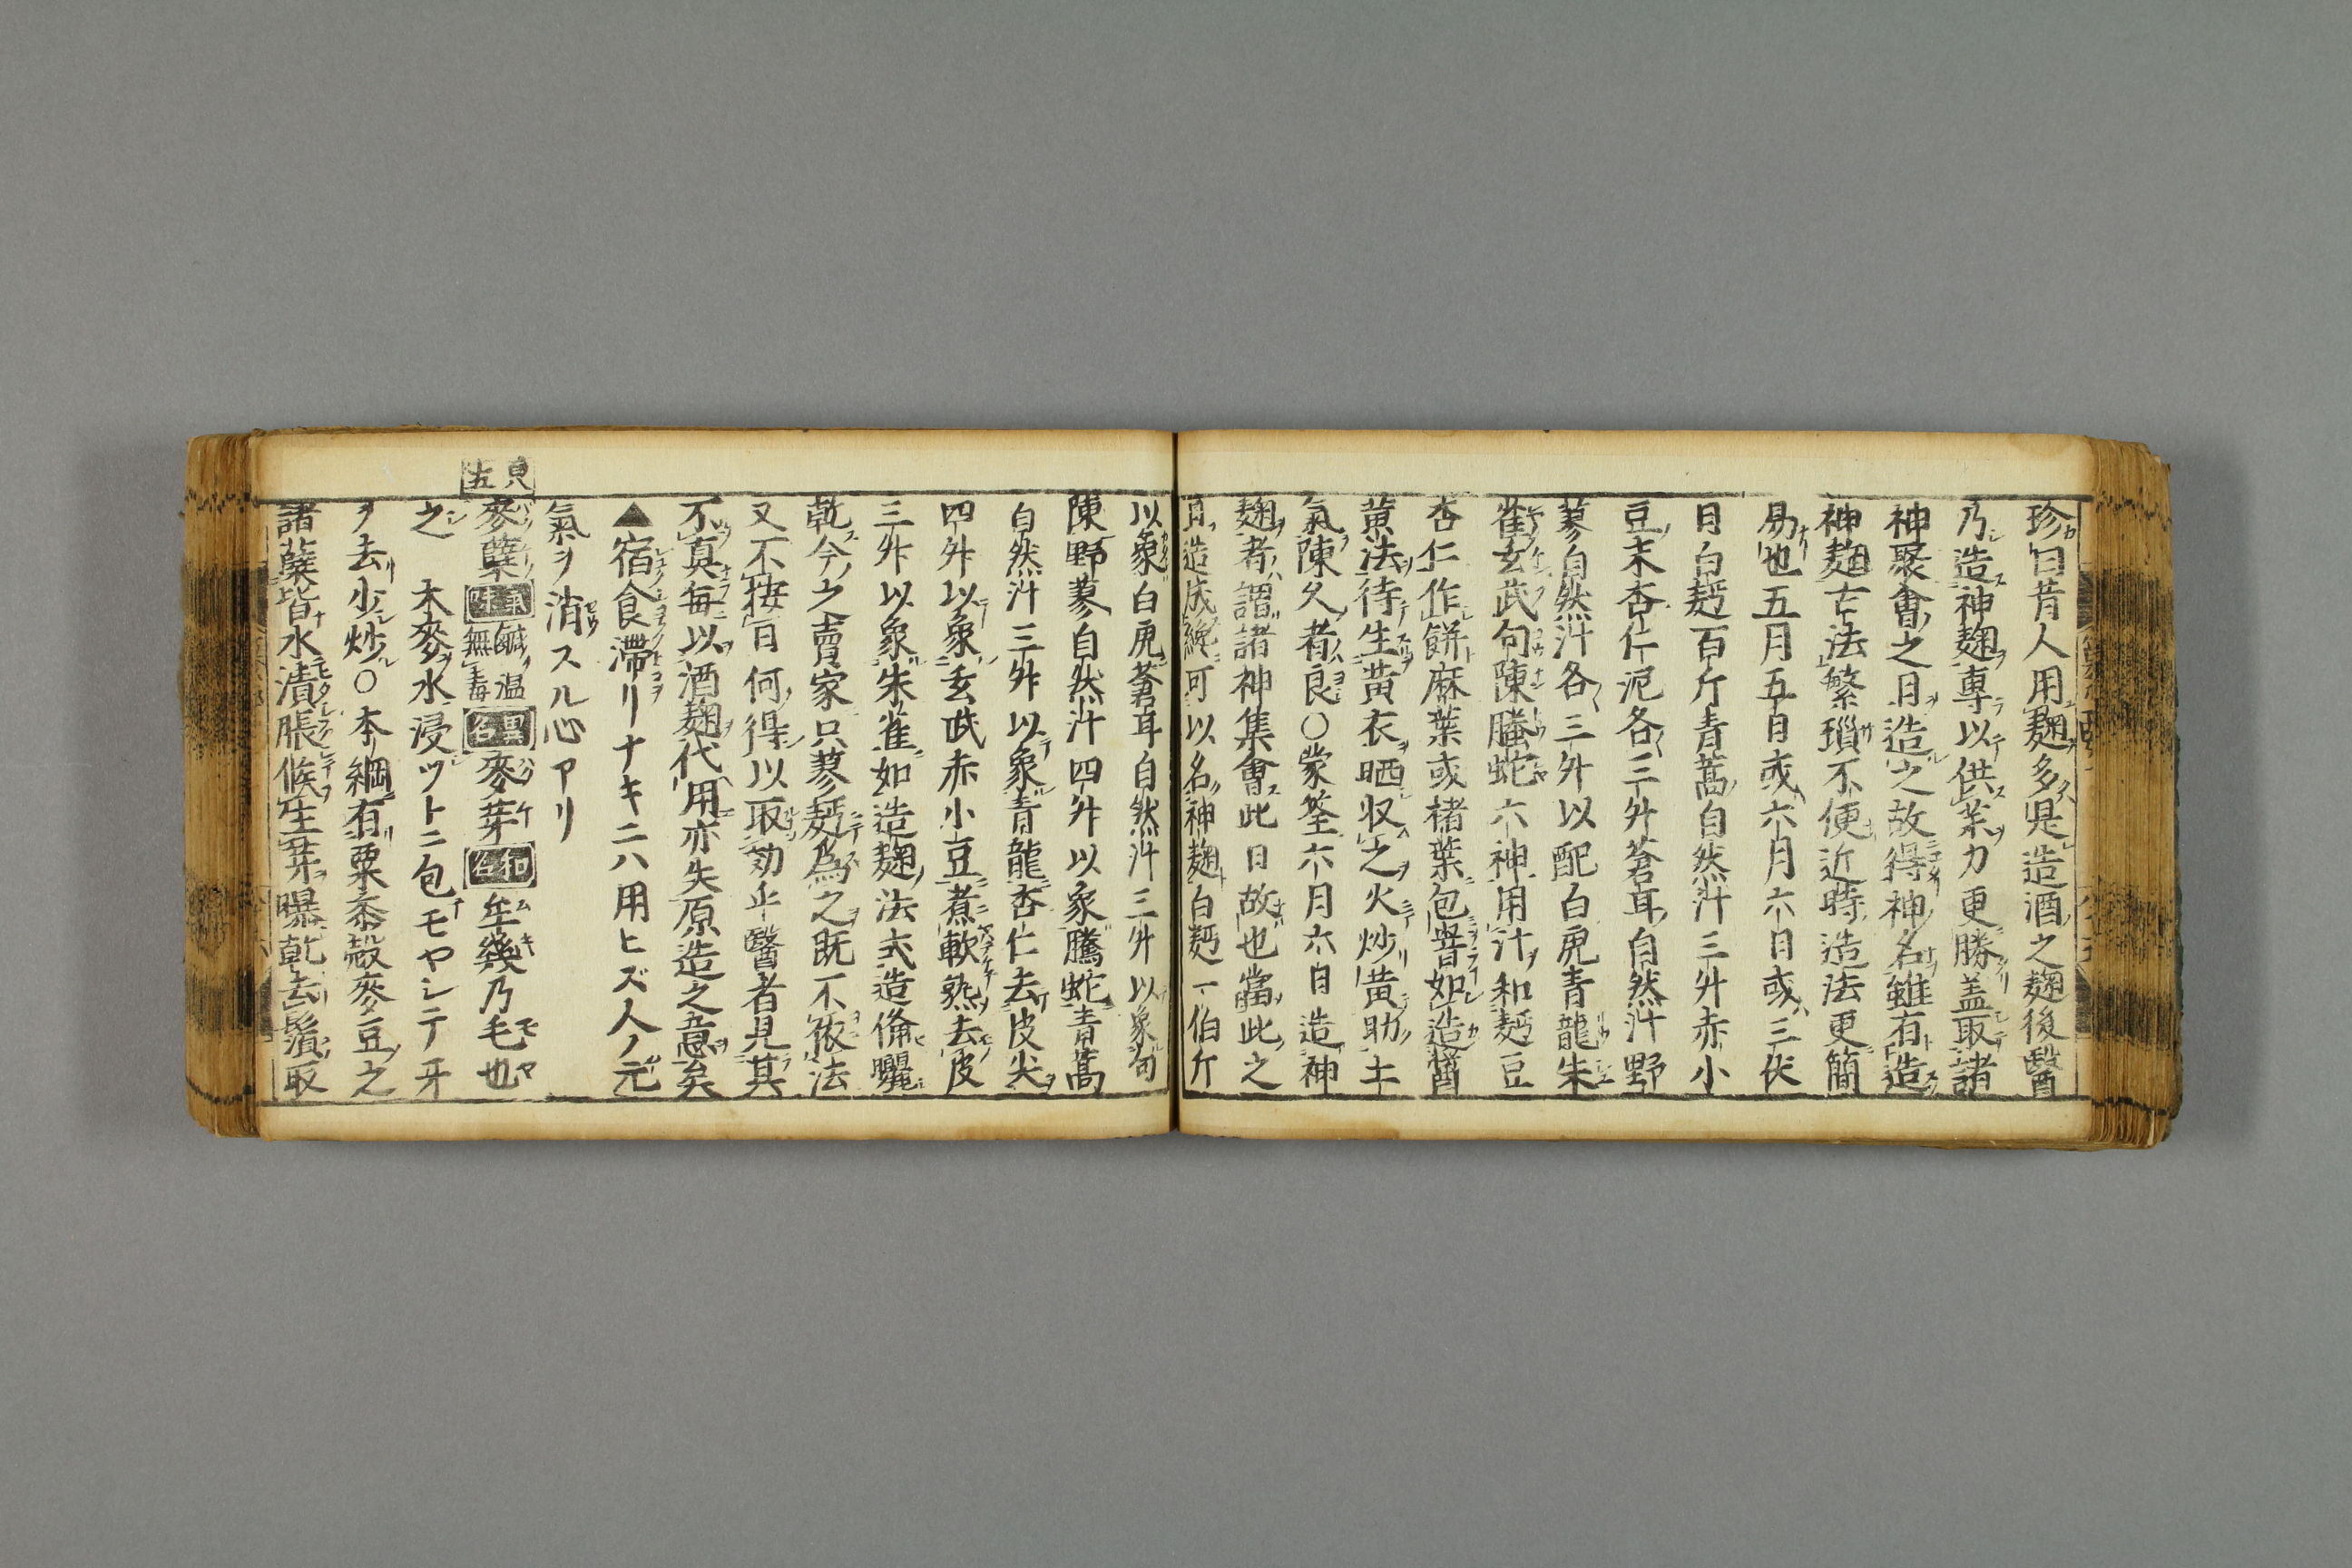 珍曰昔人用麹多是造酒之麹後醫
乃造神麹專以供薬力更勝盖取諸
神聚會之日造之故得神名雖有造
神麹古法繁瑣不便近時造法更簡
易也五月五日或六月六日或三伏
日白麪百斤青蒿自然汁三升赤小
豆末杏仁泥各三升蒼耳自然汁野
蓼自然汁各三升以配白虎青龍朱
雀玄武句陳螣蛇六神用汁和麪豆
杏仁作餅麻葉或楮葉包罯如造醬
黄法待生黄衣晒収之火炒黄助土
氣陳久者良○蒙筌六月六日造神
麹者謂諸神集會此日故也當此之
日造成纔可以名神麹白麪一伯斤
以象白虎蒼耳自然汁三升以象句
陳野蓼自然汁四升以象騰蛇青蒿
自然汁三升以象青龍杏仁去皮尖
四升以象玄武赤小豆煮軟熟去皮
三升以象朱雀如造麹法式造備曬
乾今之賣家只蓼麪為之既不依法
又不按日何得以取効乎醫者見其
不真毎以酒麹代用亦失原造之意矣
▲宿食滯リナキニハ用ヒズ人ノ元
氣ヲ消スル心アリ
見五
麥糵 氣味 鹹温無毒 異名 麥芽 和名 牟幾乃毛也
之 大麥ヲ水浸ツトニ包モヤシテ牙
ヲ去少炒○本綱有粟黍穀麥豆之
諸糵皆水漬脹候生芽曝乾去鬚取